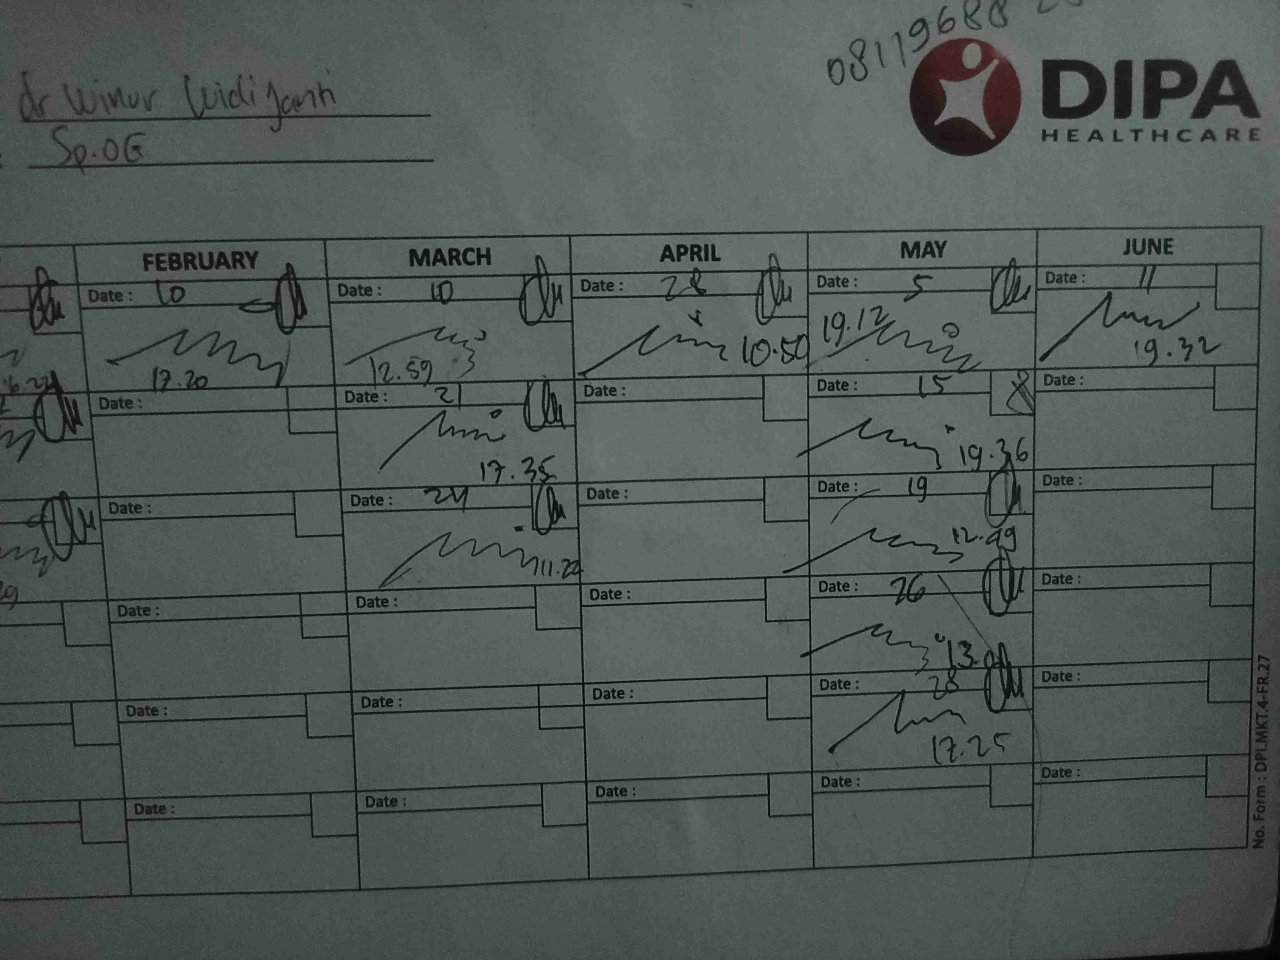 08119688
DIPA
HEALTHCARE
dr Winur Widijanti
Sp.OG
FEBRUARY MARCH APRIL MAY JUNE
Date : 10 Date : 10 Date : 28 Date : 5 Date : 11
17.20 12.59 10.50 19.12 19.32
Date : Date : 21 Date : Date : 15 Date :
17.35 19.36
Date : Date : 24 Date : Date : 19 Date :
11.22 12.49
Date : Date : Date : 26 Date :
13.
Date : Date : Date : Date : 28 Date :
17.25
Date : Date : Date : Date : Date :
No. Form : DPI.MKT.4-FR.27